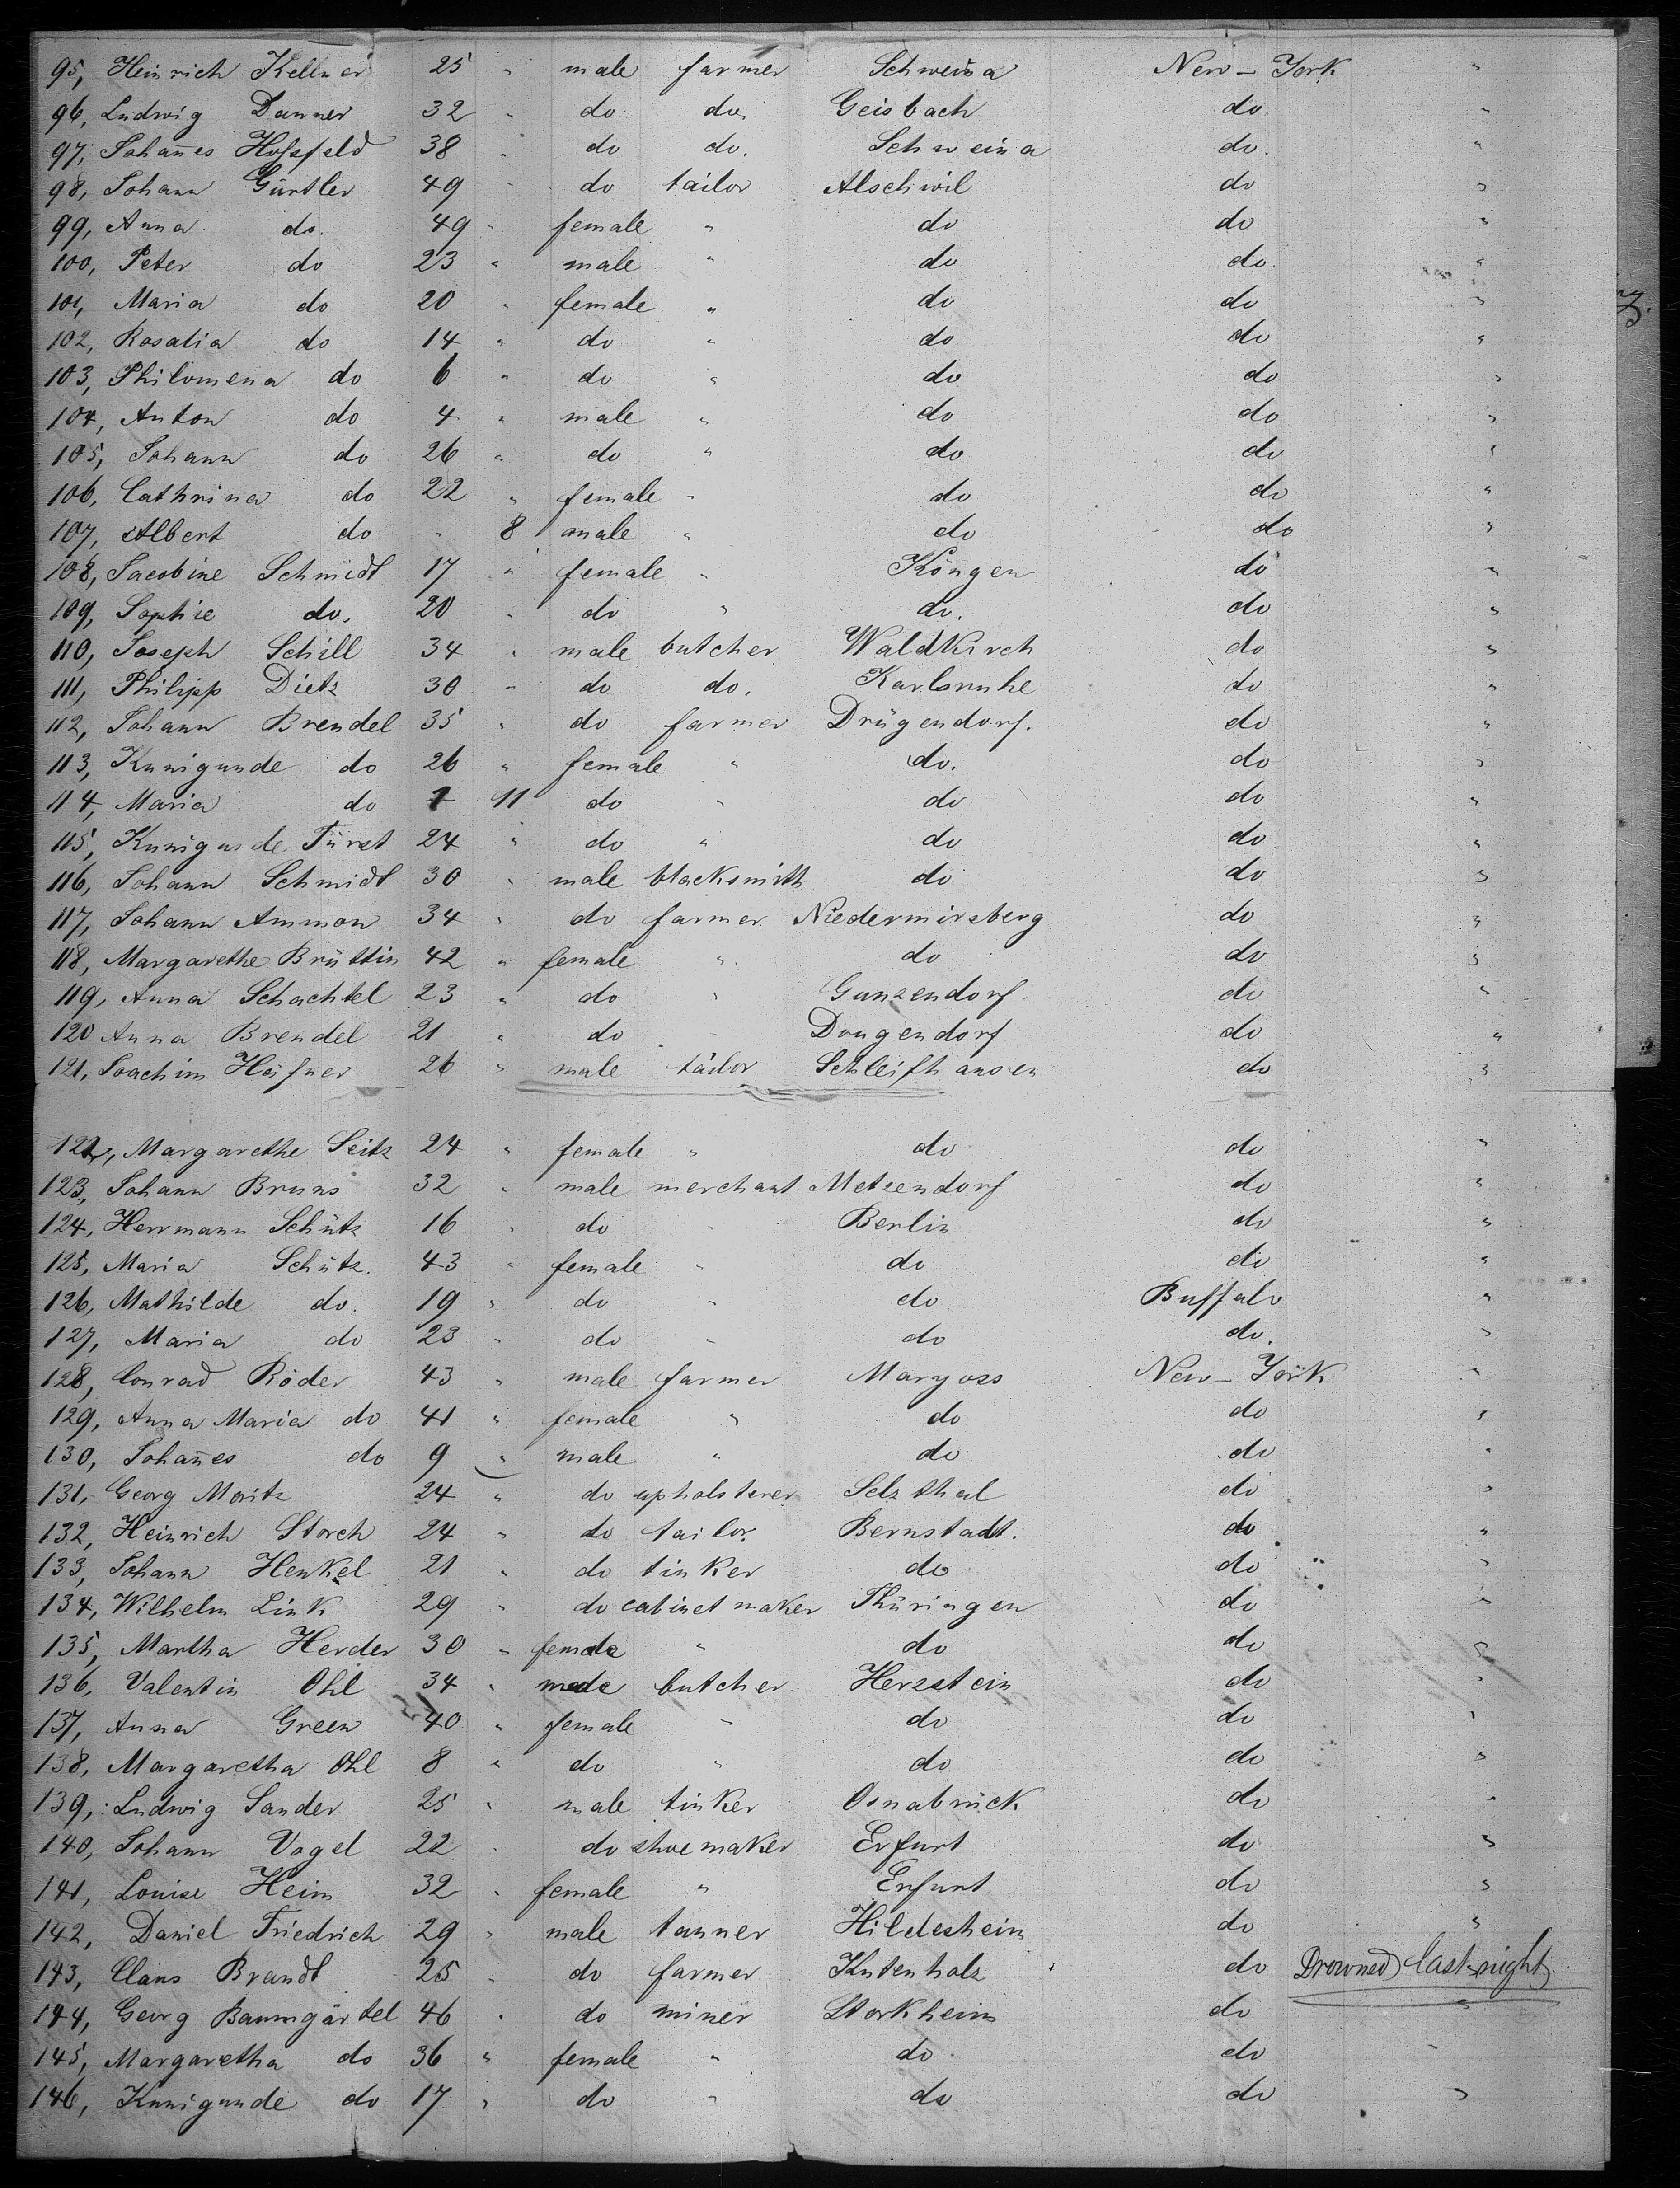 95, Heinrich Kellner 25 " male farmer Schweina New-York "
96, Ludwig Danner 32 " do do. Geisbach do. "
97, Johan̄es Hossfeld 38 " do do. Schweina do. "
98, Johann Gürtler 49 " do tailor Alschwil do "
99, Anna do. 49 " female " do do "
100, Peter do 23 " male " do do. "
101, Maria do 20 " female " do do "
102, Rosalia do 14 " do " do do "
103, Philomena do 6 " do " do do "
104, Anton do 4 " male " do do "
105, Johann do 26 " do " do do "
106, Cathrina do 22 " female " do do "
107, Albert do " 8 male " do do "
108, Jacobine Schmidt 17 " female " Köngen do "
109, Sophie do. 20 " do " do. do "
110, Joseph Schill 34 " male butcher Waldkirch do "
111, Philipp Dietz 30 " do do. Karlsruhe do "
112, Johann Brendel 35 " do farmer Drügendorf. do "
113, Kunigunde do 26 " female " do. do "
114, Maria do 1 11 do " do do "
115, Kunigunde Fürst 24 " do " do do "
116, Johann Schmidt 30 " male blacksmith do do "
117, Johann Ammon 34 " do farmer Niedermirsberg do "
118, Margarethe Brüttin 42 " female " do do "
119, Anna Schachtel 23 " do " Gunzendorf. do "
120 Anna Brendel 21 " do " Drugendorf do "
121, Joachim Häfner 26 " male tailor Schleifhausen do "
122, Margarethe Seitz 24 " female " do do "
123, Johann Bruns 32 " male merchant Metzendorf do "
124, Herrmann Schütz 16 " do " Berlin do "
125, Maria Schütz. 43 " female " do do "
126, Mathilde do. 19 " do " do Buffalo "
127, Maria do 23 " do " do do. "
128, Conrad Röder 43 " male farmer Maryoss New-York "
129, Anna Maria do 41 " female " do do "
130, Johan̄es do 9 " male " do do "
131, Georg Moritz 24 " do upholsterer Selzthal do "
132, Heinrich Storch 24 " do tailor Bernstadt. do "
133, Johann Henkel 21 " do tinker do do "
134, Wilhelm Link 29 " do cabinet maker Thüringen do "
135, Martha Herder 30 " female " do do "
136, Valentin Ohl 34 " male butcher Herzstein do "
137, Anna Green 40 " female " do do "
138, Margaretha Ohl 8 " do " do do "
139, Ludwig Sander 25 " male tinker Osnabrück do "
140, Johann Vogel 22 " do shoemaker Erfurt do "
141, Louise Heim 32 " female " Erfurt do "
142, Daniel Friedrich 29 " male tanner Hildesheim do "
143, Claus Brandt 25 " do farmer Kutenholz do Drowned last night
144, Georg Baumgärtel 46 " do miner Storkheim do "
145, Margaretha do 36 " female " do do "
146, Kunigunde do 17 " do " do do "